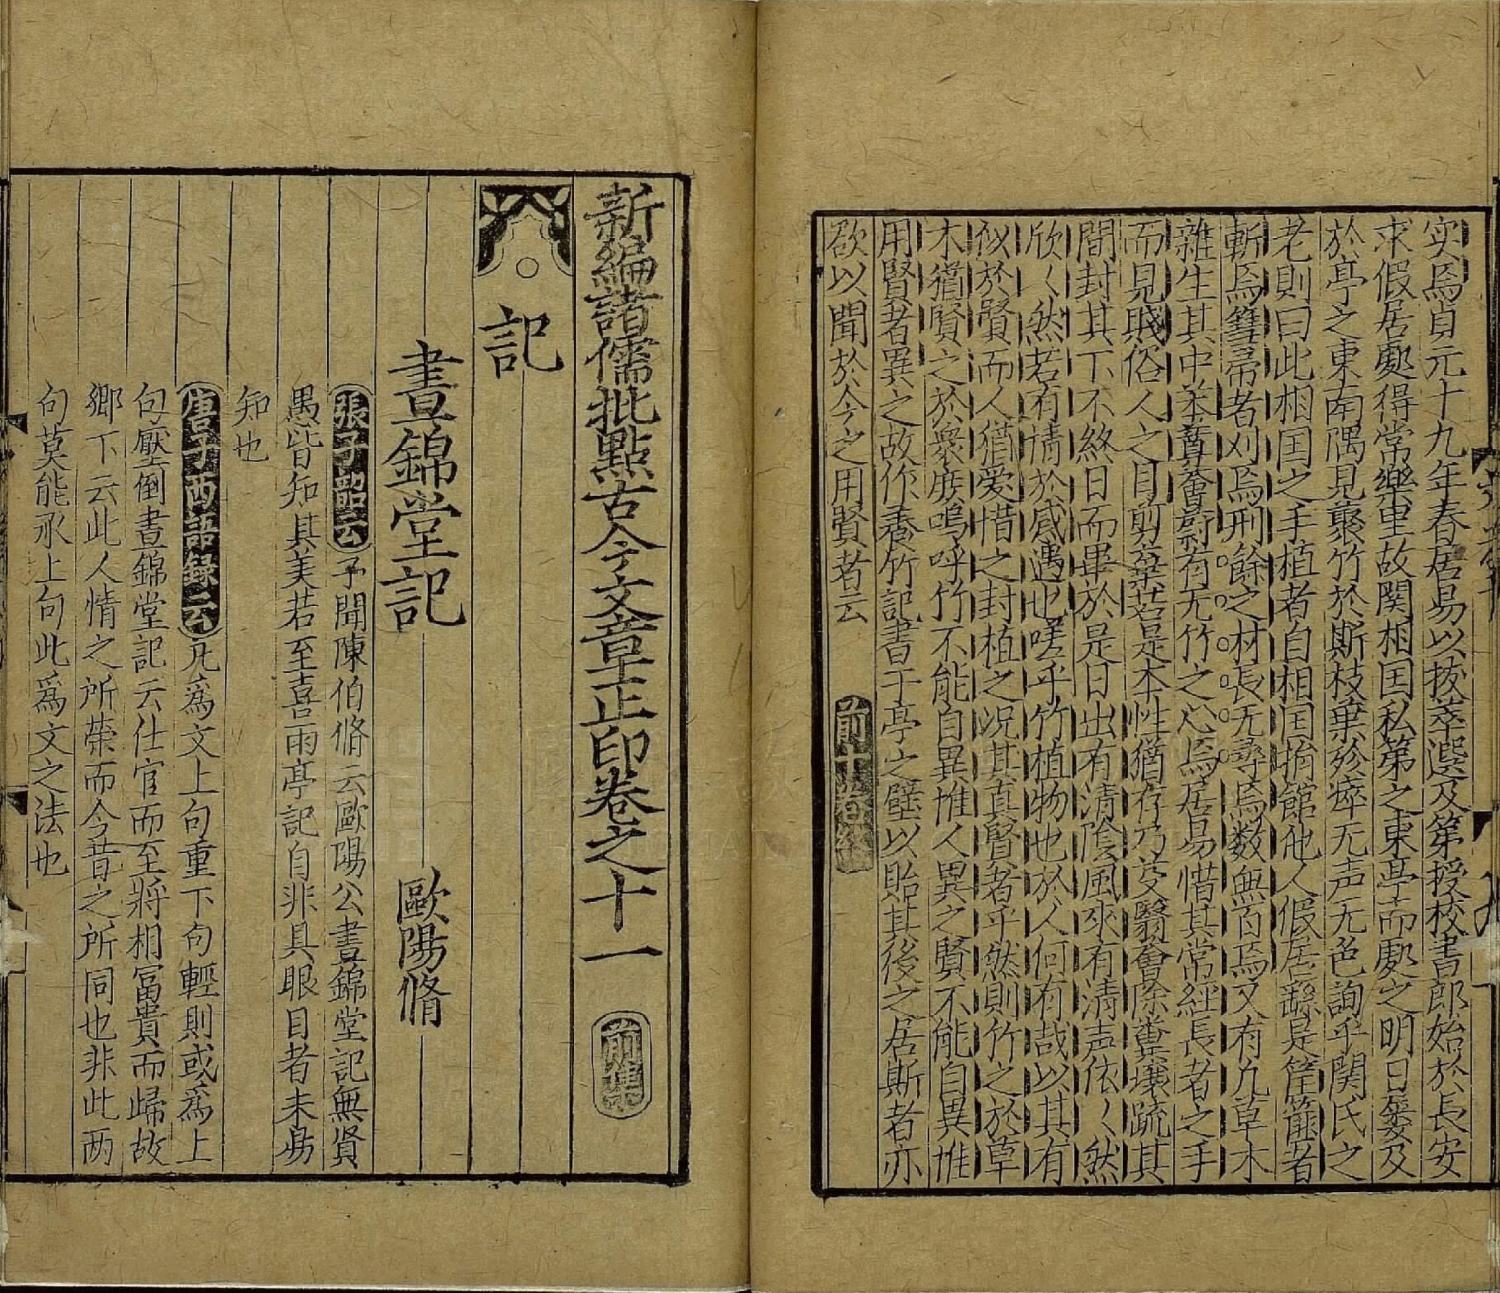 实焉貞元十九年春居易以拔萃選及第授校書郎始於長安
求假居處得常樂里故関相囯私第之東亭而處之明日屦及
於亭之東南隅見藂竹於斯枝葉殄瘁无声无色詢乎関氏之
老則曰此相囯之手植者自相囯捐館他人假居繇是筐篚者
斬焉篲帚者刈焉刑餘之材長无尋焉数無百焉又有凡草木
雜生其中苯䔿薈蔚有无竹之心焉居易惜其常經長者之手
而見賎俗人之目剪棄若是本性猶存乃芟翳薈除糞壤疏其
間封其下不終日而畢於是日出有清陰風來有清声依〱然
欣〱然若有情於感遇也嗟乎竹植物也於人何有哉以其有
似於賢而人猶爱惜之封植之况其真賢者乎然則竹之於草
木猶賢之於衆庶嗚呼竹不能自異惟人異之賢不能自異惟
用賢者異之故作養竹記書于亭之壁以貽其後之居斯者亦
欲以聞於今之用賢者云
前十卷終
新編諸儒批點古今文章正印卷之十一 前集
記
晝錦堂記 歐陽脩
張子韶云予聞陳伯脩云歐陽公晝錦堂記無賢
愚皆知其美若至喜雨亭記自非具眼目者未易
知也
唐子西語録云凡為文上句重下句輕則或為上
句壓倒晝錦堂記云仕官而至將相冨貴而歸故
鄉下云此人情之所榮而今昔之所同也非此两
句莫能承上句此為文之法也